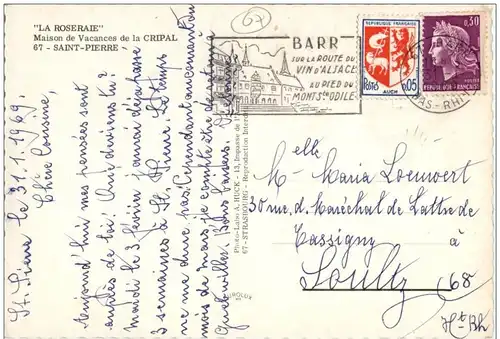 "LA ROSERAIE"
Maison de Vacances de la CRIPAL
67 - SAINT-PIERRE
67
BARR
SUR LA ROUTE DU
VIN D'ALSACE
AU PIED DU
MONT STE ODILE
REPUBLIQUE FRANÇAISE
POSTES 0,05
AUCH
0,30
REPUBLIQUE FRANÇAISE
BAS-RHIN
St. Pierre le 31.1.1969.
Chère Cousine,
Aujourd'hui mes pensées sont
auprès de toi. Que deviens-tu?
Mardi le 3 février j'aurai déjà passé
3 semaines à St. Pierre. Le temps
ne me dure pas. Cependant au
mois de mars je compte être de retour à
Guebwiller. Bons baisers.
Photo-Labo A. HUCK - 13, Impasse de
67 - STRASBOURG - Reproduction Interdite
Melle
M. Maria Loewert
30 rue. d. Maréchal de Lattre de
Tassigny
à
Soultz (68
Ht Rh